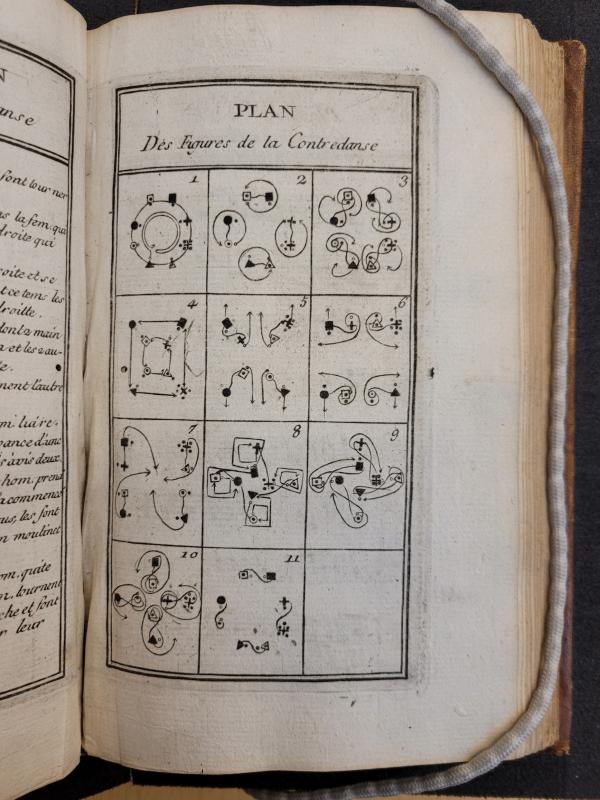 N
anse
font tour ner
ns la fem. qui
droite qui
oite et se
t ce tems les
droitte.
dont 2 main
n et les 2 au-
te.
nent l'autre
m: liare-
avance d'unc
s avis deux.
hom. prend
a commence
us, les font
n moulinet
om. quite
n, tournent
che et font
r leur
PLAN
Des Figures de la Contredanse
1
2
3
4
5
6
7
8
9
10
11